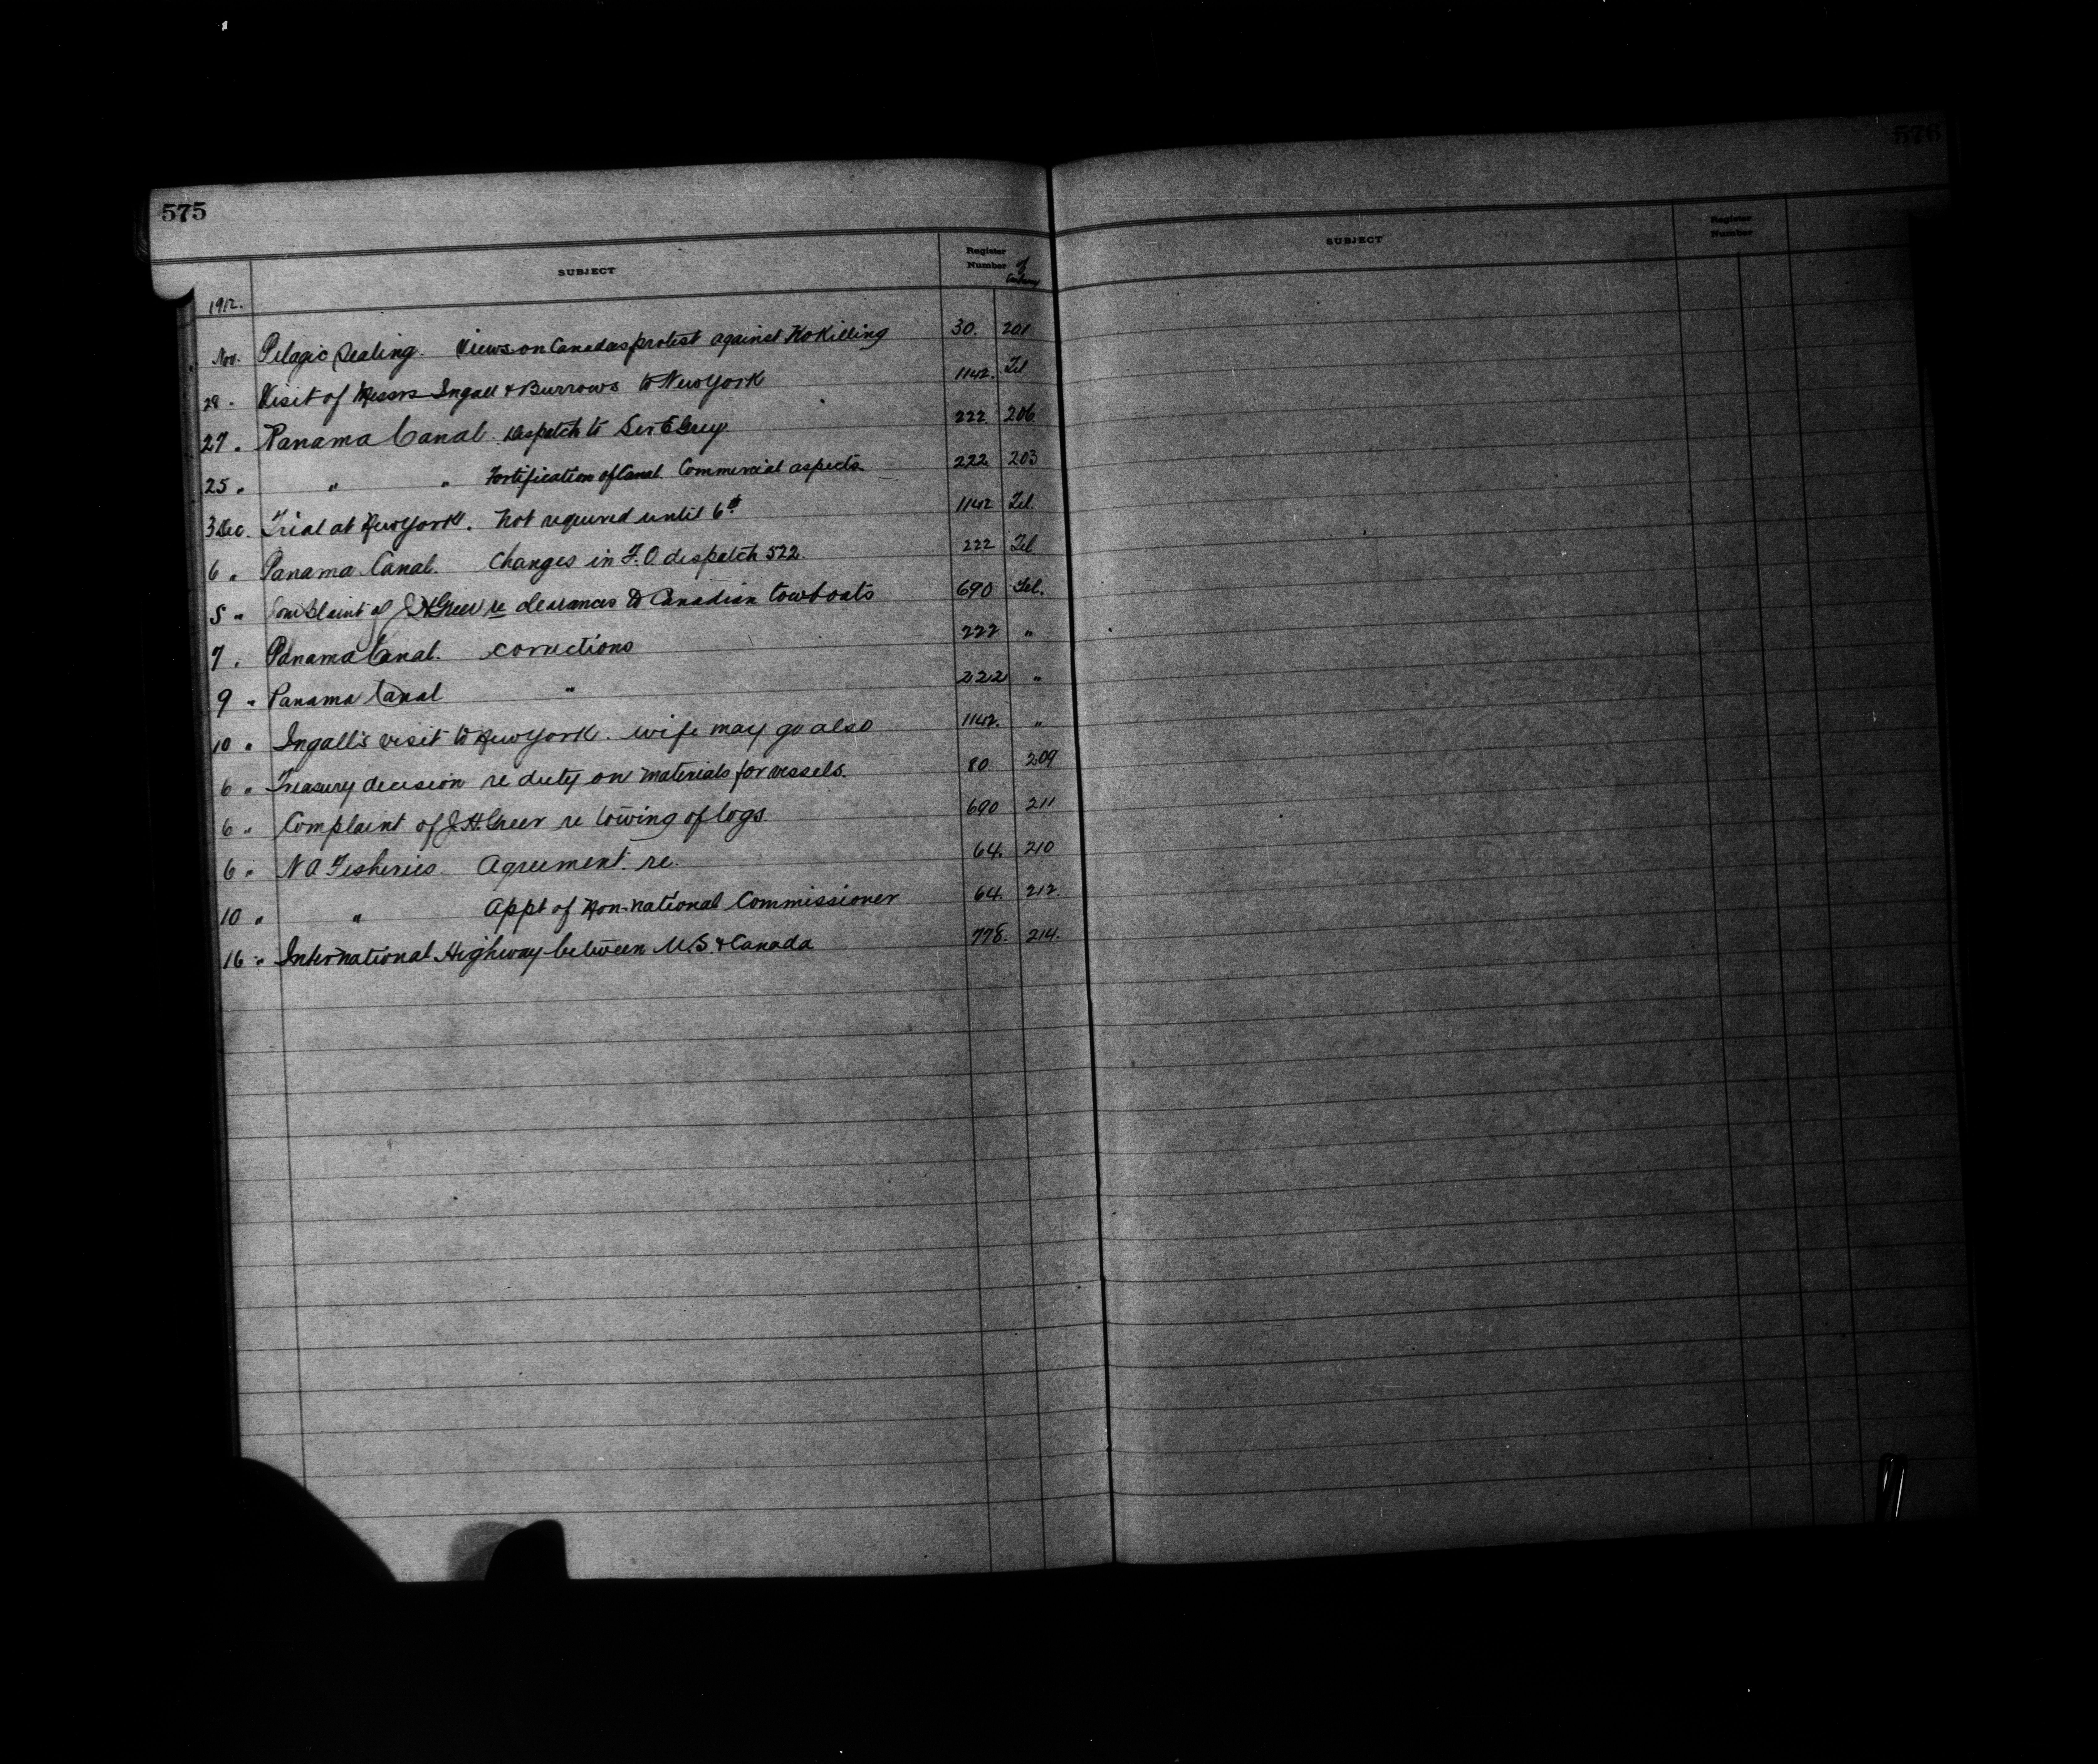 575
SUBJECT
Register
Number of
1912.
Nov. Pelagic Sealing. Views on Canadas protest against No Killing 30. 201
28 . Visit of Messrs Ingall & Burrows to New York 1142. Tel
27 . Panama Canal. Despatch to Sir E Grey 222 206
25 " " " Fortification of Canal. Commercial aspects 222 203
3 Dec. Trial at New York. Not required until 6th 1142 Tel.
6 " Panama Canal. Changes in F.O despatch 522. 222 Tel
5 " Complaint of J H Greer re clearances to Canadian towboats 690 Tel.
7 . Panama Canal. corrections 222 "
9 " Panama Canal " 222 "
10 " Ingall's visit to New York. wife may go also 1142. "
6 " Treasury decision re duty on materials for vessels. 80. 209
6 " Complaint of J. H. Greer re towing of logs. 690 211
6 " N A Fisheries. Agreement re. 64. 210
10 " " Appt of Non-national Commissioner 64. 212.
16 " International Highway between U.S. & Canada 778. 214.
576
SUBJECT
Register
Number